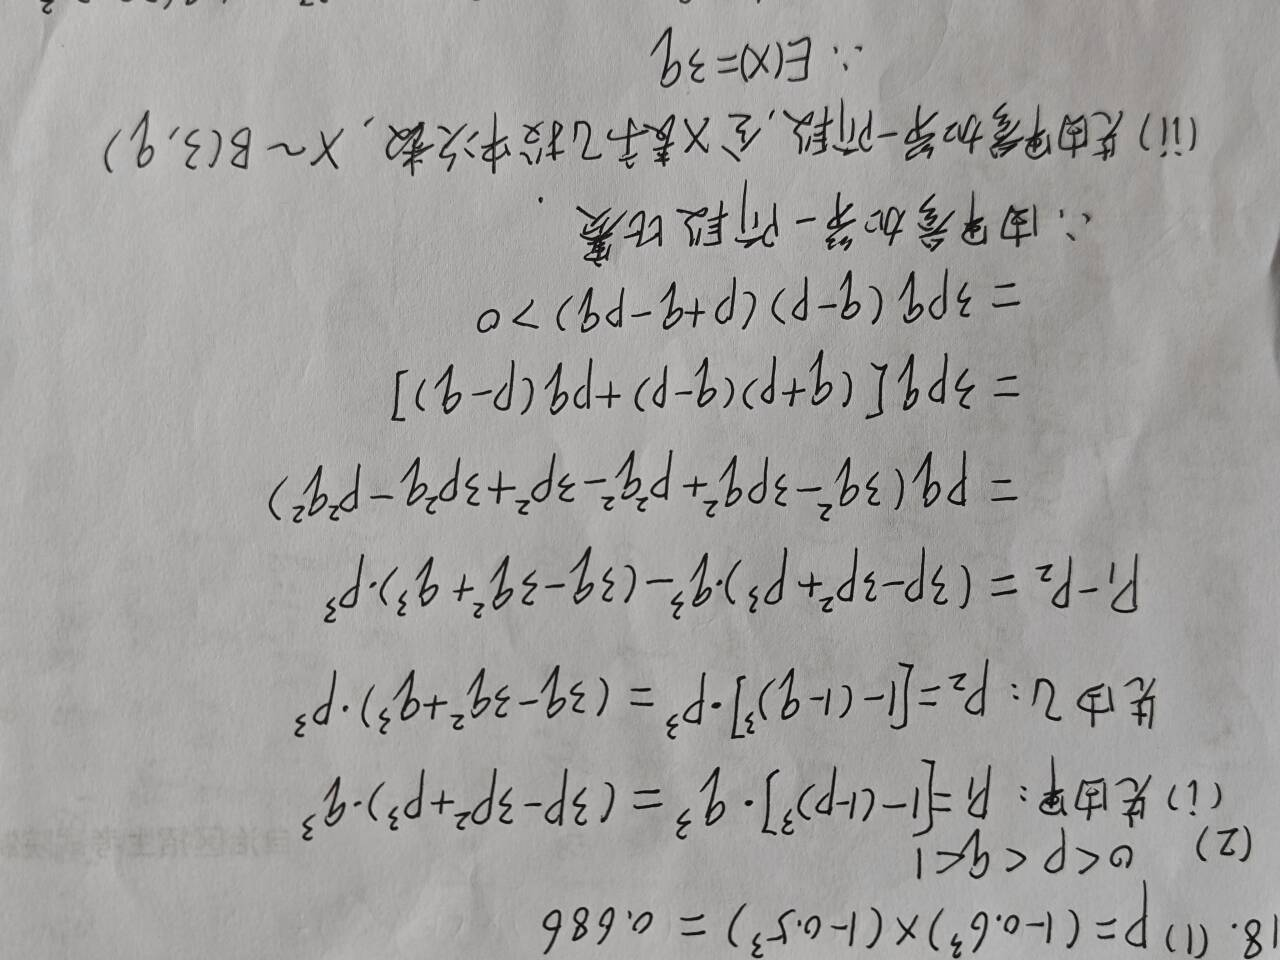 18. (1) P=(1-0.6³)×(1-0.5³) = 0.686
(2) 0<p<q<1
(i) 先由甲: P₁=[1-(1-p)³]·q³ = (3p-3p²+p³)·q³
先由乙: P₂=[1-(1-q)³]·p³ = (3q-3q²+q³)·p³
P₁-P₂ = (3p-3p²+p³)·q³-(3q-3q²+q³)·p³
= pq(3q²-3pq²+p²q²-3p²+3p²q-p²q²)
= 3pq[(q+p)(q-p)+pq(p-q)]
= 3pq(q-p)(p+q-pq)>0
∴由甲参加第一阶段比赛.
(ii) 先由甲参加第一阶段,令X表示乙投中次数, X~B(3,q)
∴ E(X)=3q